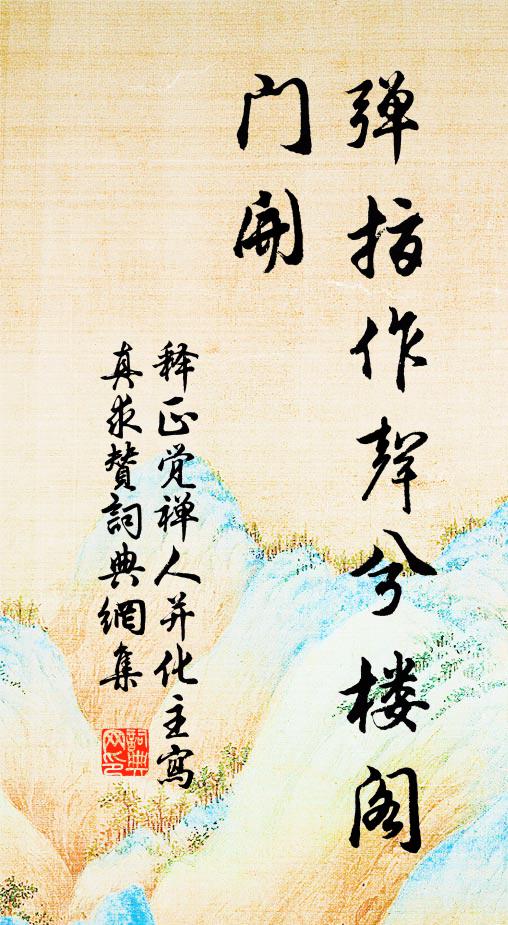 弹指作聲兮楼阁
门開
释正觉禅人并化主寫
真求赞詞典網集
詞典網印